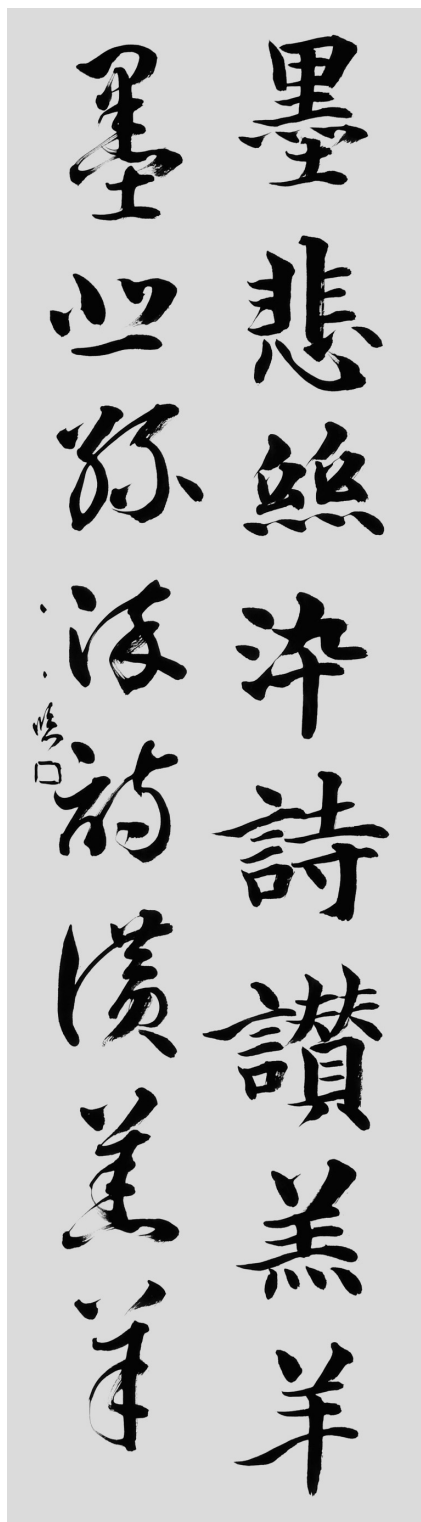 墨悲絲染詩讃羔羊
墨悲絲染詩讃羔羊